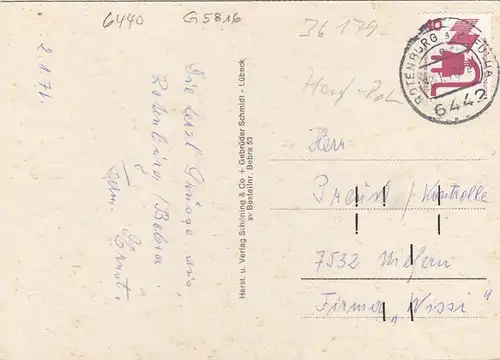 6440 G5816
36 179
40
ROTENBURG A. D. FULDA
6442
2.1.71.
Die herzl Grüsse aus
Rotenburg / Bebra.
Fam.
Herst. u. Verlag Schöning & Co + Gebrüder Schmidt - Lübeck
sv Bestellnr. Bebra 53
Herr
/ Kontrolle
7532 Niefern
Firma „Nissi“